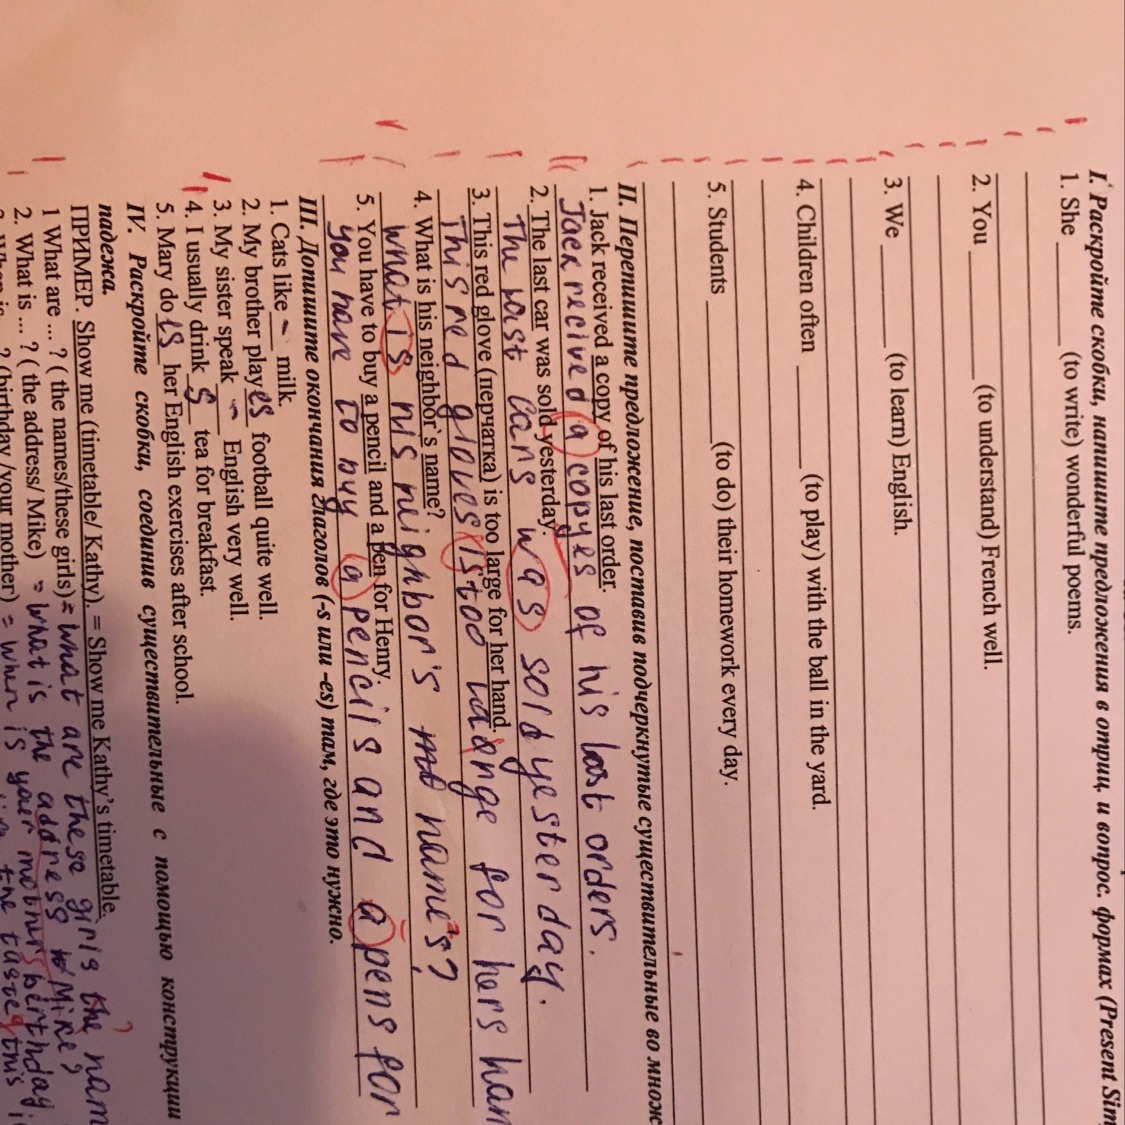 I. Раскройте скобки, напишите предложения в отриц. и вопрос. формах (Present Sim
1. She ______ (to write) wonderful poems.
2. You ______ (to understand) French well.
3. We ______ (to learn) English.
4. Children often ______ (to play) with the ball in the yard.
5. Students ______ (to do) their homework every day.
II. Перепишите предложение, поставив подчеркнутые существительные во множ
1. Jack received a copy of his last order.
Jack recived a copyes of his last orders.
2. The last car was sold yesterday.
The last cars was sold yesterday.
3. This red glove (перчатка) is too large for her hand.
This red gloves is too large for hers han
4. What is his neighbor`s name?
What is his neighbor's names?
5. You have to buy a pencil and a pen for Henry.
You have to buy a pencils and a pens for
III. Допишите окончания глаголов (-s или -es) там, где это нужно.
1. Cats like - milk.
2. My brother playes football quite well.
3. My sister speak - English very well.
4. I usually drink s tea for breakfast.
5. Mary do es her English exercises after school.
IV. Раскройте скобки, соединив существительные с помощью конструкции
падежа.
ПРИМЕР. Show me (timetable/ Kathy). = Show me Kathy's timetable.
1 What are ... ? ( the names/these girls) = What are these girls the nam
2. What is ... ? ( the address/ Mike) = What is the address Mike?
? (birthday /your mother) = When is your mother's birthday